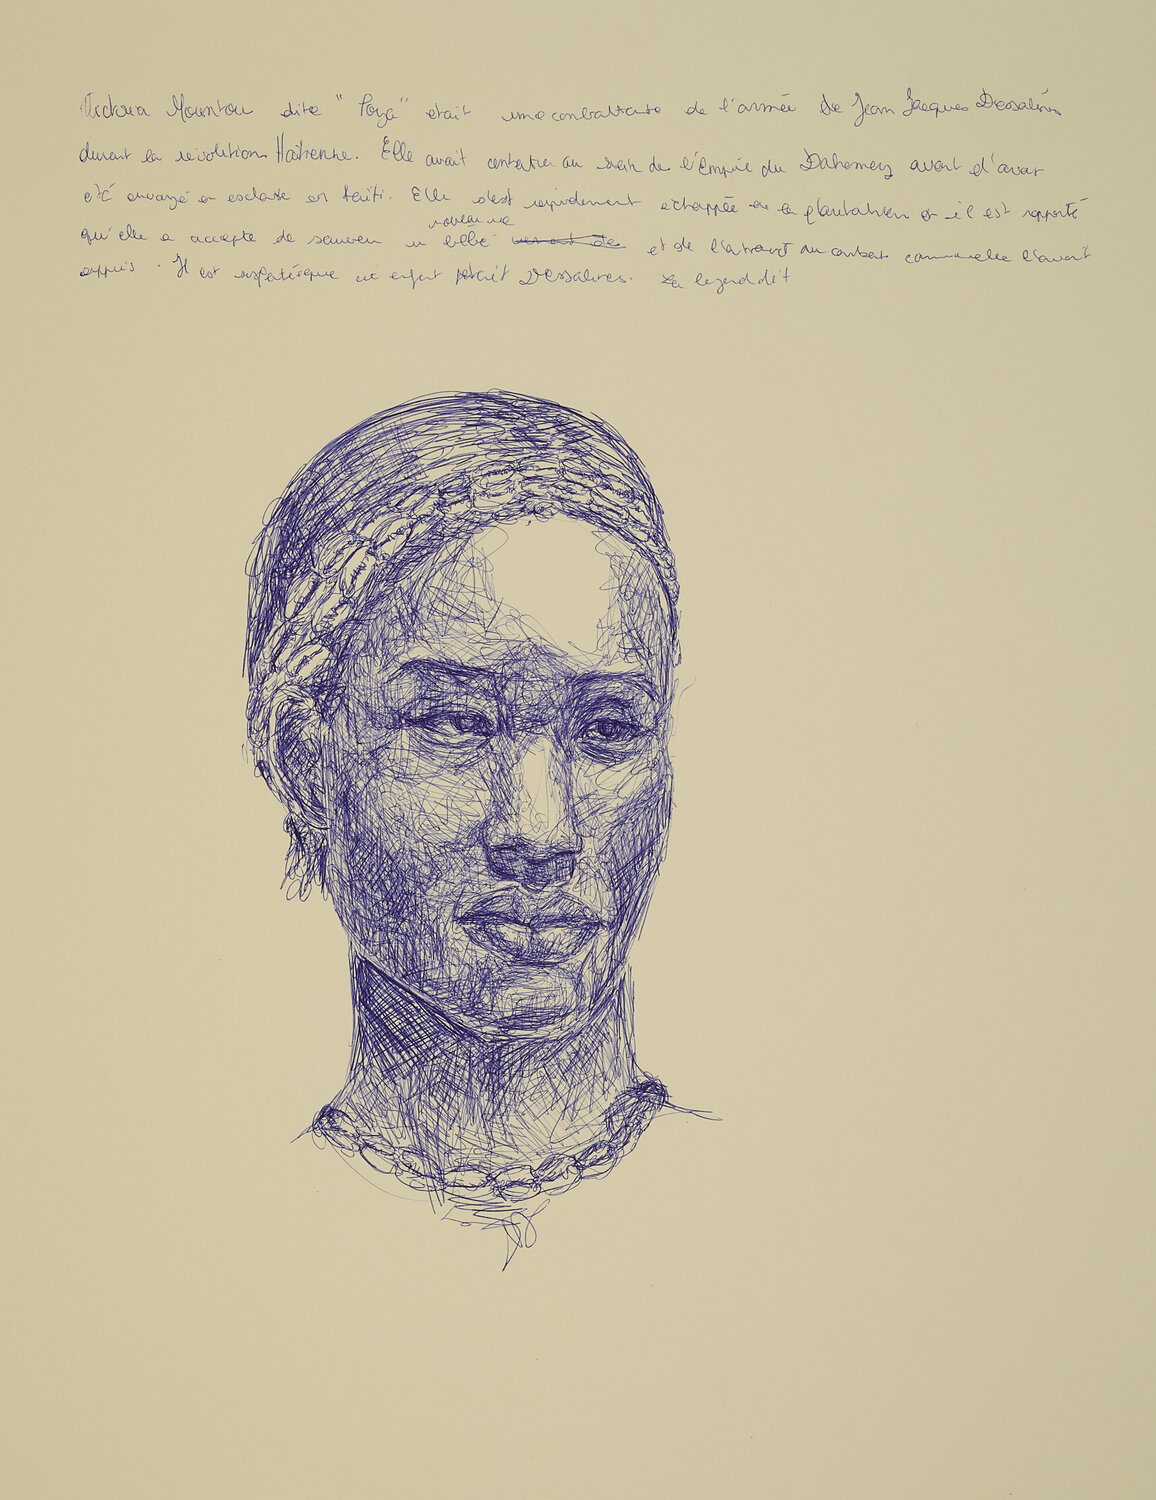 Victoria Mountou dite "Toya" etait une combattante de l'armée de Jean Jacques Dessalines
durant la révolution Haïtienne. Elle avait combattu au sein de l'Empire du Dahomey avant d'avoir
été envoyé en esclave en Haïti. Elle s'est rapidement echappée de la plantation et il est rapporté
nouveau né
qu'elle a accepté de sauver un bébé et de l'entrainer au combat comme elle l'avait
appris. Il est enfant Dessalines. La legend dit